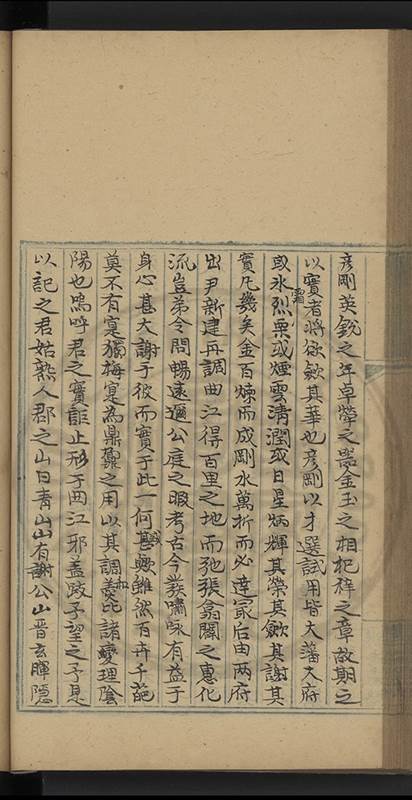 彦剛英銳之年卓犖之器金玉之相杞梓之章故期之
以實者將欲歛其華也彦剛以才選試用皆大藩大府
或氷霜烈栗或煙雲清潤或日星炳輝其榮其歛其謝其
實凡幾矣金百煉而成剛水萬折而必達冣后由兩府
出尹新建再調曲江得百里之地而弛張翕闢之惠化
流豈弟令問暢遠邇公庭之暇考古今羙嘯咏有益于
身心甚大謝于彼而實于此一何甚歟雖然百卉千葩
莫不有寔獨梅寔為鼎鼐之用以其調和羮比諸爕理陰
陽也嗚呼君之實詎止形于曲江邪盖跂予望之予是
以記之君姑熟人郡之山曰青山山有謝公山晋玄暉隱